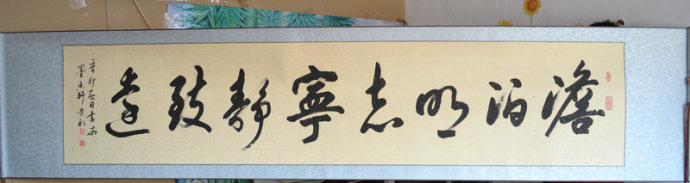 澹泊明志寧静致遠
辛卯春月書於